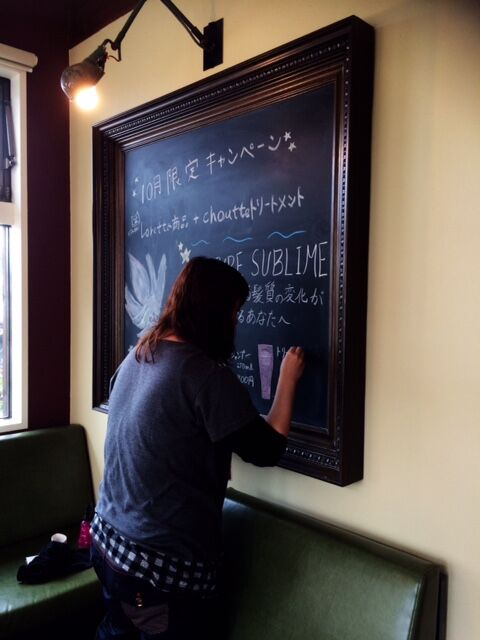 10月限定キャンペーン
Loretta商品 + choutteトリートメント
SUBLIME
髪質の変化が
るあなたへ
270ml
00円